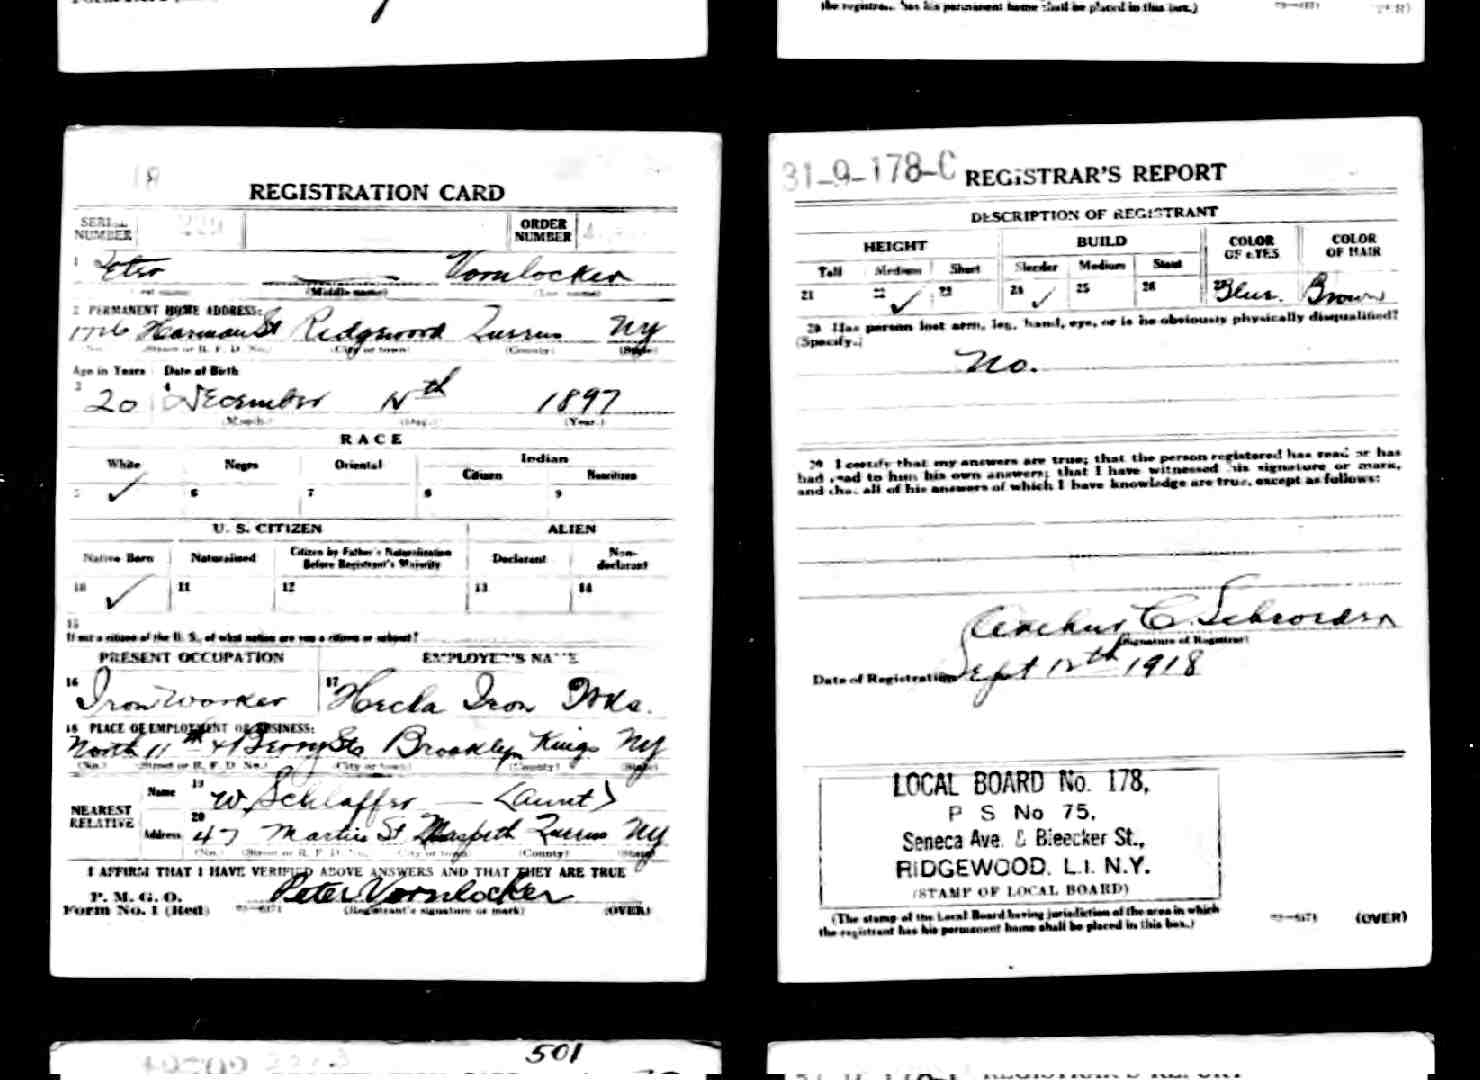 the registrant has his permanent home shall be placed in this box.)
18
REGISTRATION CARD
SERIAL NUMBER
ORDER NUMBER
1 Peter Vornlocker
(Middle name)
2 PERMANENT HOME ADDRESS:
1726 Harman St Ridgewood Queens NY
(No.) (Street or R. F. D. No.) (City or town) (County) (State)
Age in Years Date of Birth
3 20 4 December 14th 1897
(Month.) (Day.) (Year.)
RACE
White Negro Oriental Indian
Citizen Noncitizen
5 ✓ 6 7 8 9
U. S. CITIZEN ALIEN
Native Born Naturalized Citizen by Father's Naturalization Before Registrant's Majority Declarant Non-declarant
10 ✓ 11 12 13 14
15
If not a citizen of the U. S., of what nation are you a citizen or subject?
PRESENT OCCUPATION EMPLOYER'S NAME
16 Iron Worker 17 Hecla Iron Wks.
18 PLACE OF EMPLOYMENT OR BUSINESS:
North 11th & Berry Sts Brooklyn Kings NY
(No.) (Street or R. F. D. No.) (City or town) (County) (State)
NEAREST RELATIVE
Name 19 W. Schlaffer — (Aunt)
Address 20 47 Martin St Maspeth Queens NY
(No.) (Street or R. F. D. No.) (City or town) (County) (State)
I AFFIRM THAT I HAVE VERIFIED ABOVE ANSWERS AND THAT THEY ARE TRUE
P. M. G. O.
Form No. 1 (Red) Peter Vornlocker
(Registrant's signature or mark) (OVER)
501
31-9-178-C REGISTRAR'S REPORT
DESCRIPTION OF REGISTRANT
HEIGHT BUILD COLOR OF EYES COLOR OF HAIR
Tall Medium Short Slender Medium Stout
21 22 ✓ 23 24 ✓ 25 26 Blue. Brown
29 Has person lost arm, leg, hand, eye, or is he obviously physically disqualified?
(Specify.)
No.
30 I certify that my answers are true; that the person registered has read or has
had read to him his own answers; that I have witnessed his signature or mark,
and that all of his answers of which I have knowledge are true, except as follows:
Arthur C. Schroeder
(Signature of Registrar)
Date of Registration Sept 12th 1918
LOCAL BOARD No. 178,
P S No 75,
Seneca Ave. & Bleecker St.,
RIDGEWOOD. L.I. N.Y.
(STAMP OF LOCAL BOARD)
(The stamp of the Local Board having jurisdiction of the area in which
the registrant has his permanent home shall be placed in this box.)
(OVER)